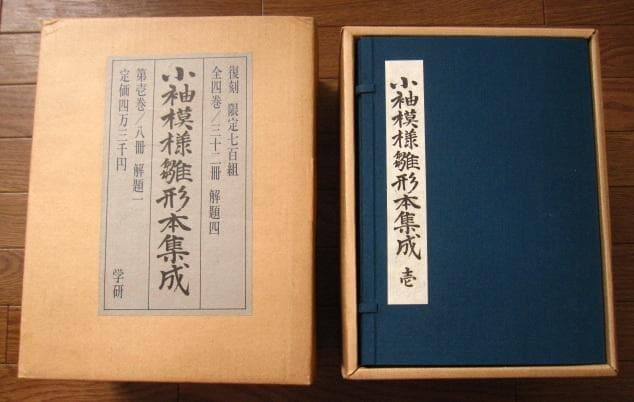 復刻 限定七百組
全四巻/三十二冊 解題四
小袖模様雛形本集成
第壱巻/八冊 解題一
定価四万三千円
学研
小袖模様雛形本集成 壱